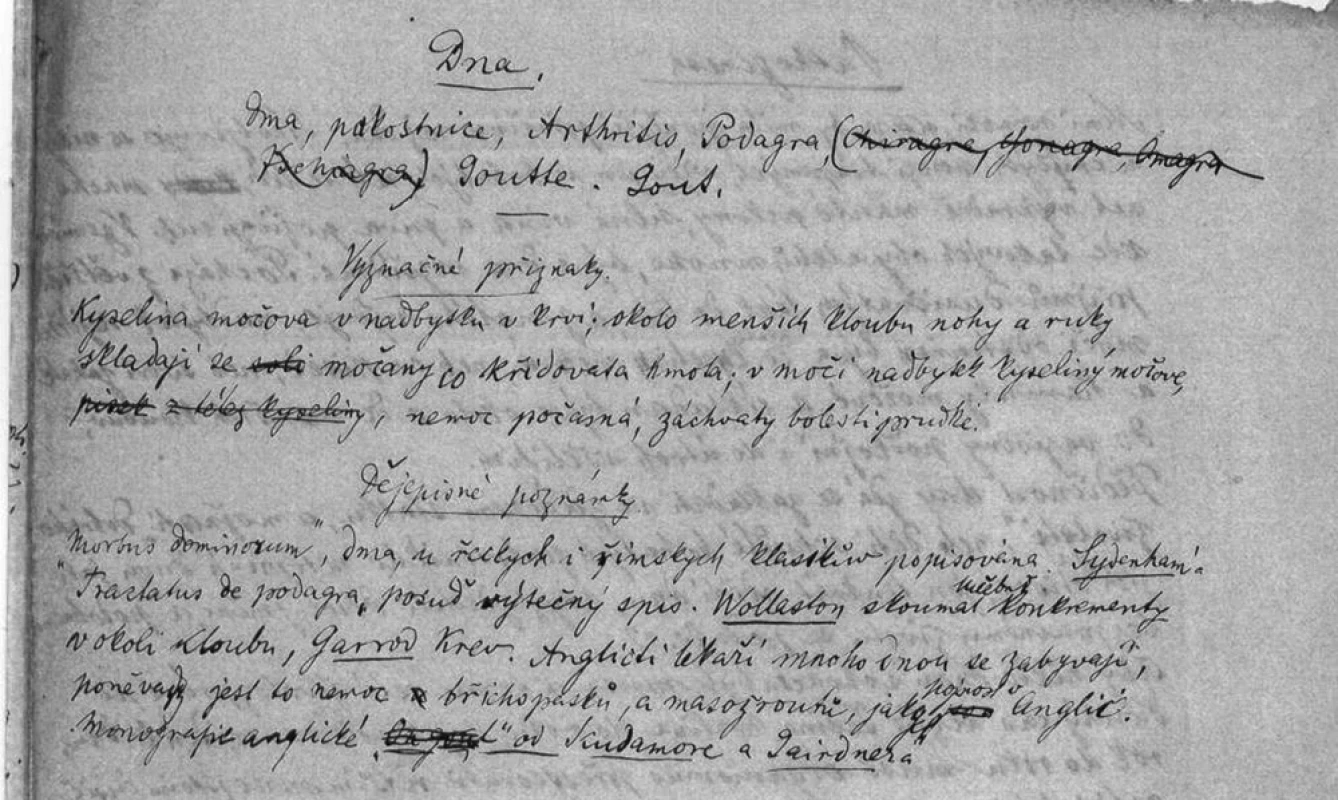 Dna.
dma, pakostnice, Arthritis, Podagra, (Chiragra, Gonagra, Omagra
Rachiagra) Goutte. Gout.
Význačné příznaky.
Kyselina močova v nadbytku v krvi; okolo menších kloubu nohy a ruky
skladají se soli močany co křidovata hmota; v moči nadbytek kyseliny močové,
pisek z téléz kyseliny, nemoc počasná, záchvaty bolesti prudké.
Dějepisné poznámky
"Morbus dominorum", dma, u řeckych i římskych klasikův popisována. Sydenhamá
"Tractatus de podagra" posud výtečný spis. Wollaston skoumal konkrementy
v okoli kloubu, Garrod krev. Angličti lékaři mnoho dnou se zabyvají,
poněvadž jest to nemoc břichopasků, a masožroutů, jako Anglič.
Monografie anglické od Scudamore a Gairdnera"